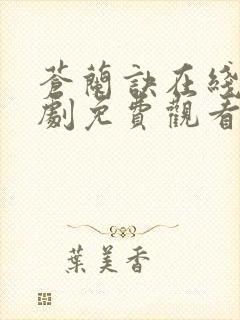 蒼蘭訣在綫
劇免費觀看
葉美香